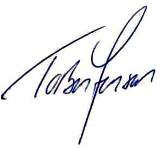 Torben Jensen